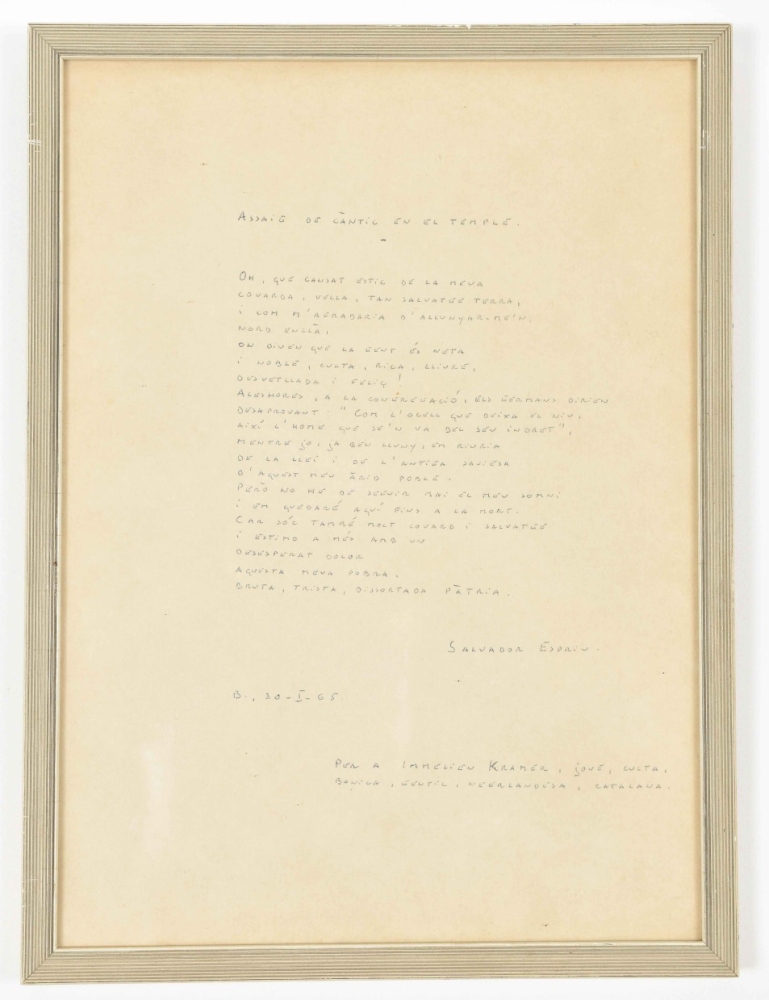 Assaig de càntic en el temple.
Oh, que cansat estic de la meva
covarda, vella, tan salvatge terra,
i com m'agradaria d'allunyar-me'n,
nord enllà,
on diuen que la gent és neta
i noble, culta, rica, lliure,
desvetllada i feliç!
Aleshores, a la congregació, els germans dirien
desaprovant: "Com l'ocell que deixa el niu,
així l'home que se'n va del seu indret",
mentre jo, ja ben lluny, em riuria
de la llei i de l'antiga saviesa
d'aquest meu àrid poble.
Però no he de seguir mai el meu somni
i em quedaré aquí fins a la mort.
Car sóc també molt covard i salvatge
i estimo a més amb un
desesperat dolor
aquesta meva pobra,
bruta, trista, dissortada pàtria.
Salvador Espriu.
B., 30-I-65.
Per a Immelien Kramer, jove, culta,
bonica, gentil, neerlandesa, catalana.